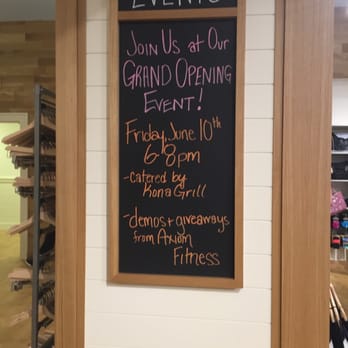 EVENTS
JOIN US at OUR
GRAND OPENING
EVENT!
Friday, June 10th
6-8pm
-catered by
Kona Grill
-demos + giveaways
from Axiom
Fitness